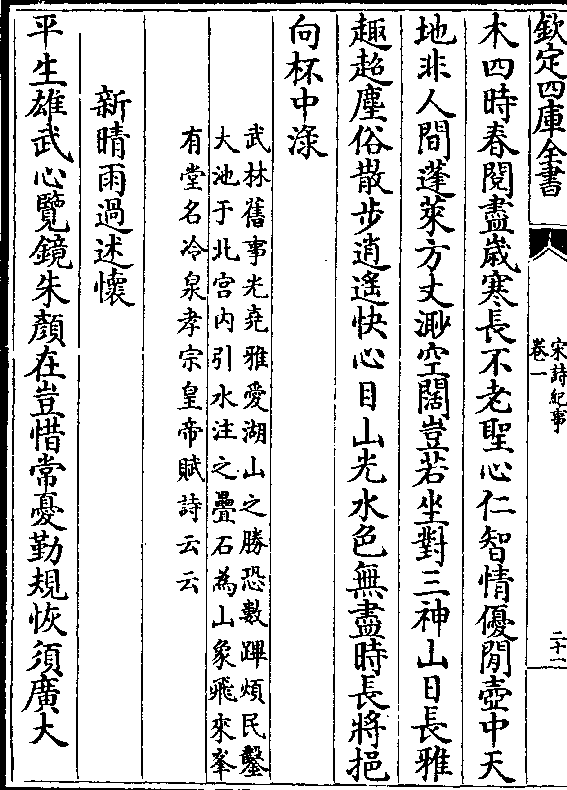 欽定四庫全書
宋詩紀事
卷一
二十二
木四時春閱盡嵗寒長不老聖心仁智情優閒壺中天
地非人間蓬萊方丈渺空闊豈若坐對三神山日長雅
趣超塵俗散步逍遙快心目山光水色無盡時長將挹
向杯中渌
武林舊事光堯雅愛湖山之勝恐數蹕煩民鑿
大池于北宫内引水注之疊石為山象飛來峯
有堂名冷泉孝宗皇帝賦詩云云
新晴雨過述懷
平生雄武心覽鏡朱顏在豈惜常憂勤規恢須廣大